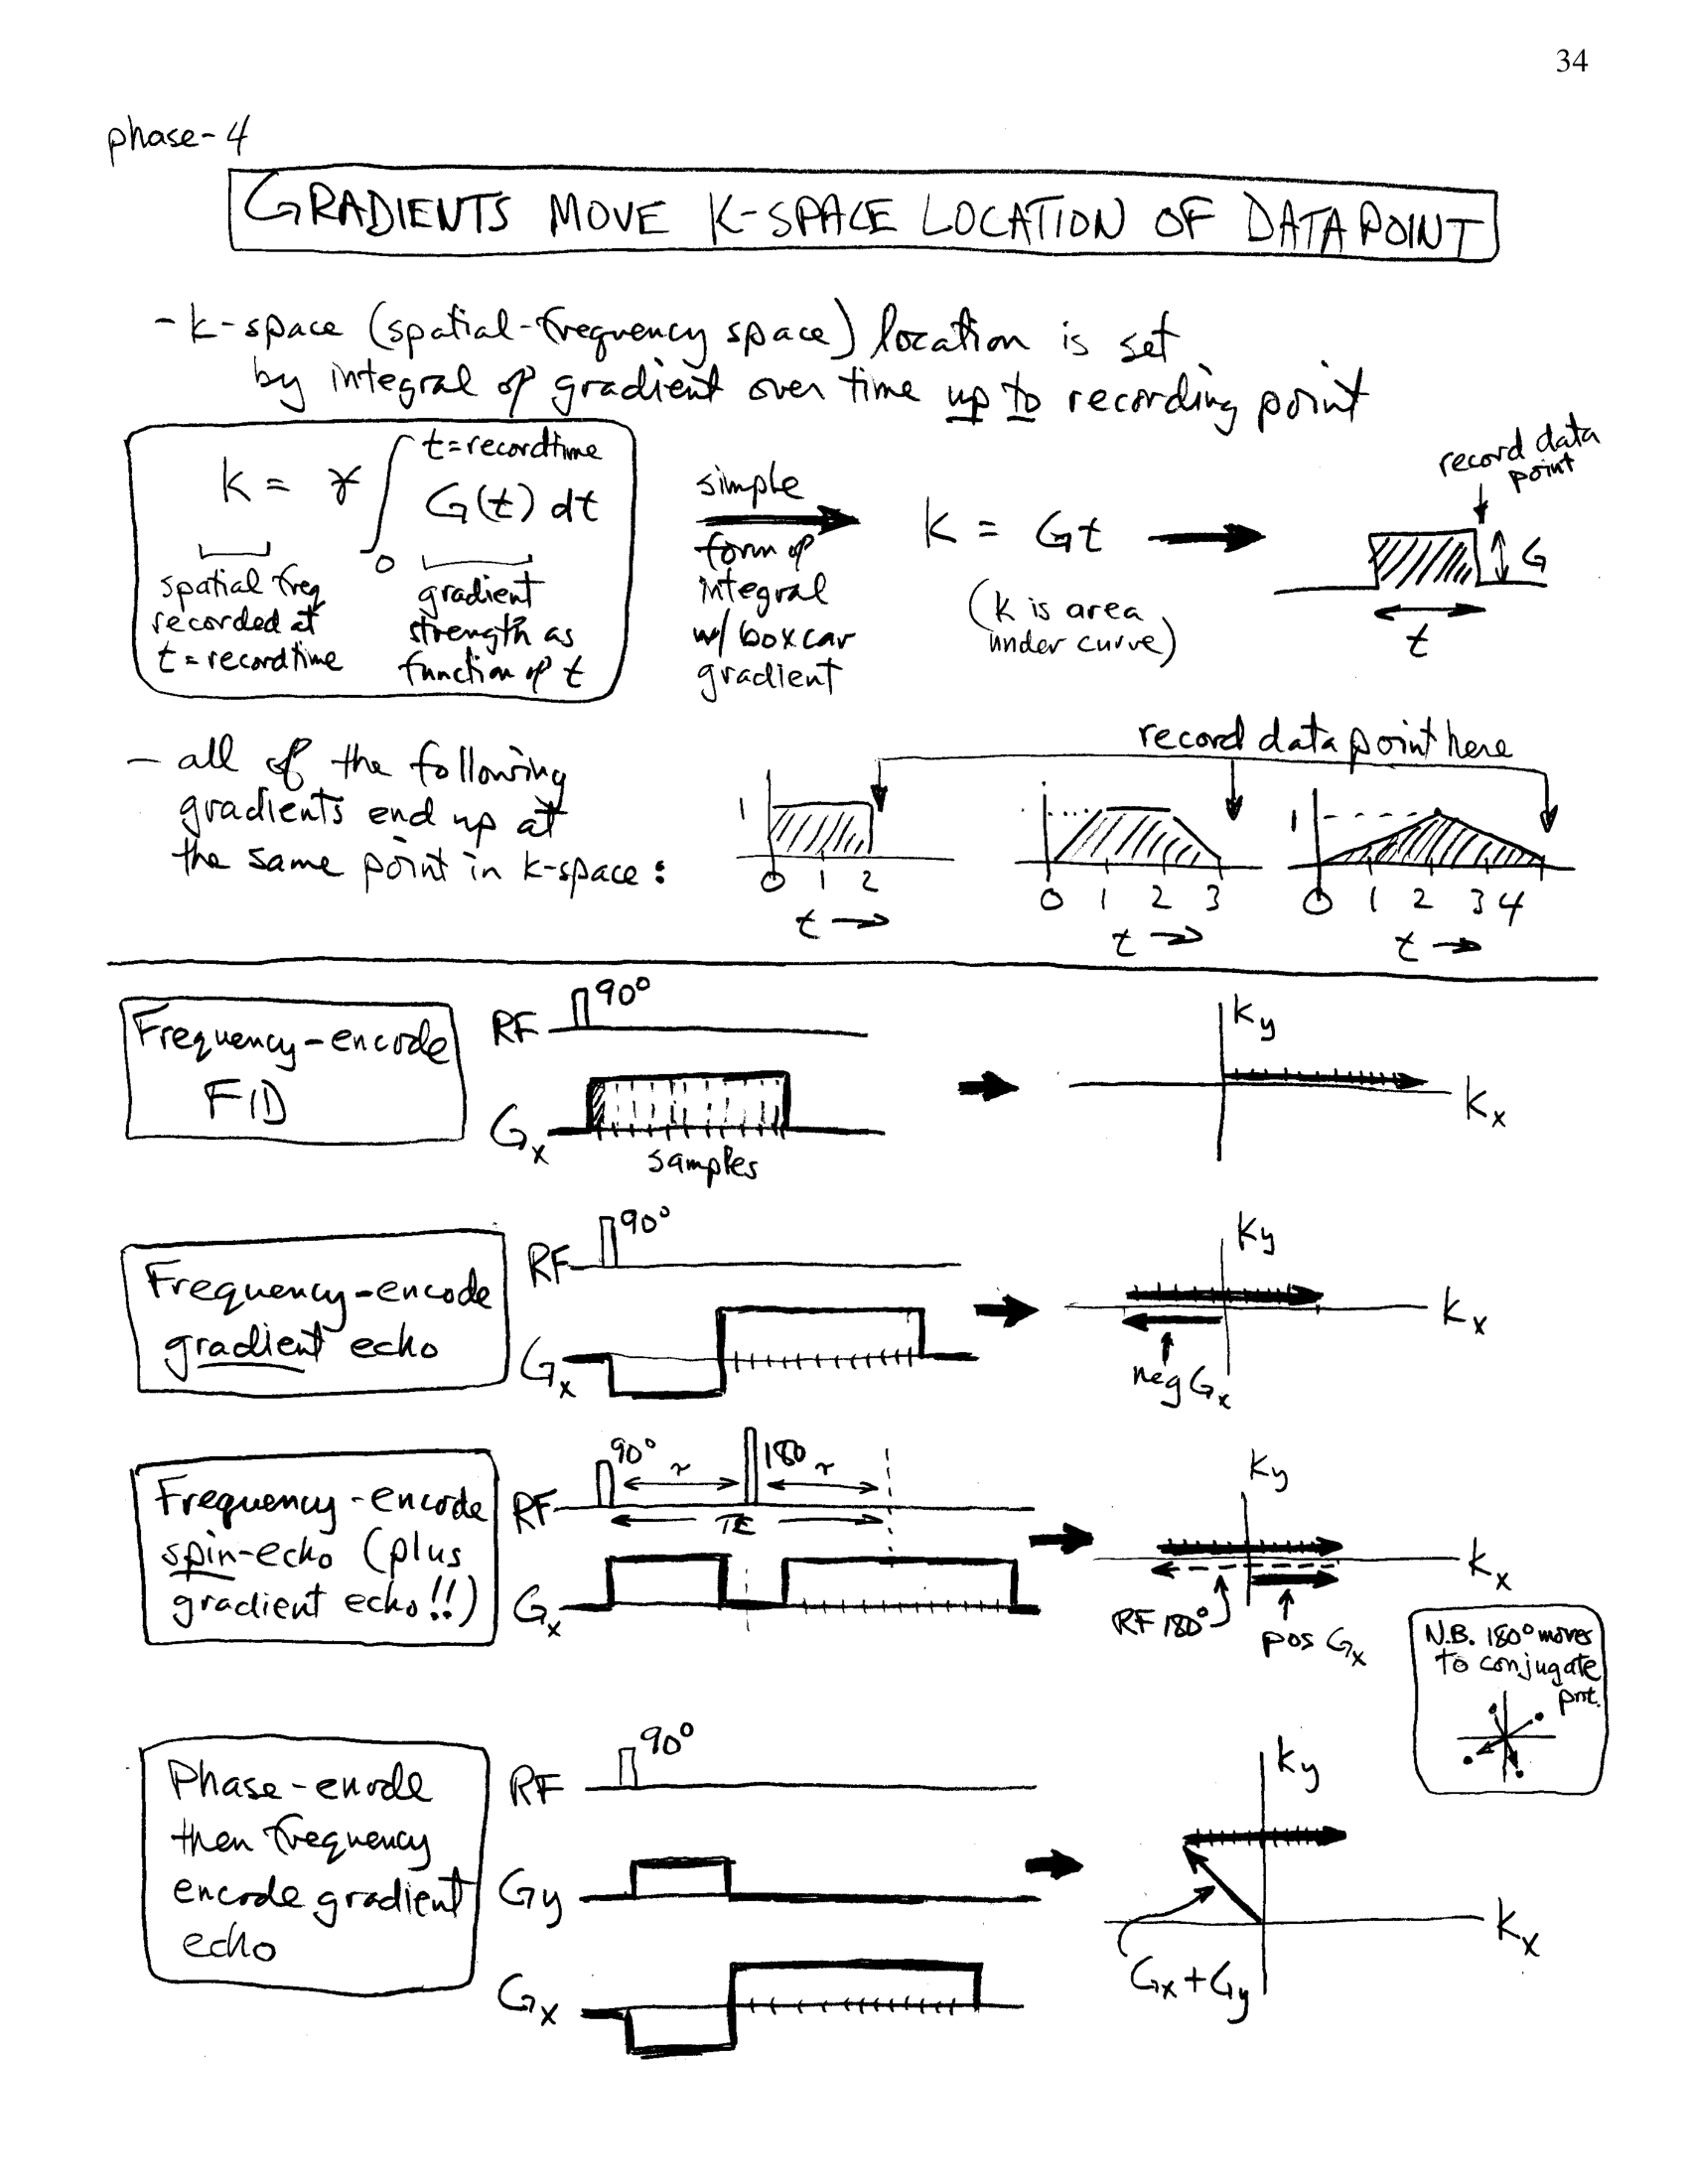 34
phase-4
GRADIENTS MOVE K-SPACE LOCATION OF DATA POINT
- k-space (spatial-frequency space) location is set
by integral of gradient over time up to recording point
k = γ ∫ G(t) dt
t=recordtime
0
spatial freq
recorded at
t=recordtime
gradient
strength as
function of t
simple
form of
integral
w/ boxcar
gradient
k = Gt
(k is area
under curve)
record data
point
G
t
- all of the following
gradients end up at
the same point in k-space:
record data point here
1
0 1 2
t →
0 1 2 3
t →
1
0 1 2 3 4
t →
Frequency-encode
FID
RF 90°
Gx
samples
ky
kx
Frequency-encode
gradient echo
RF 90°
Gx
ky
kx
neg Gx
Frequency-encode
spin-echo (plus
gradient echo!!)
RF 90° τ 180 τ
TE
Gx
ky
kx
RF 180°
pos Gx
N.B. 180° moves
to conjugate
pnt.
Phase-enode
then frequency
encode gradient
echo
RF 90°
Gy
Gx
ky
kx
Gx+Gy